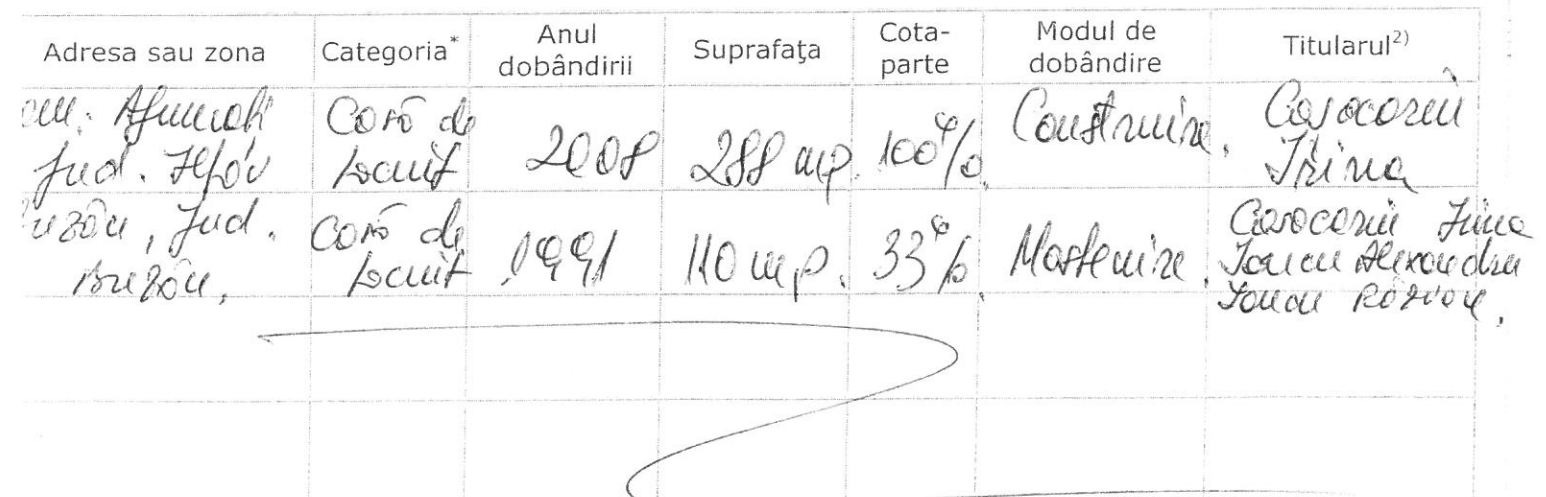 Adresa sau zona Categoria* Anul dobândirii Suprafaţa Cota-parte Modul de dobândire Titularul2)
com. Afumati Jud. Ilfov Casă de locuit 2008 288 mp. 100%. Construire. Cosocariu Irina
Buzău, Jud. Buzău, Casă de locuit 1991 110 mp. 33%. Mostenire. Cosocariu Irina Ioncu Alexandru Ioncu Răzvan.